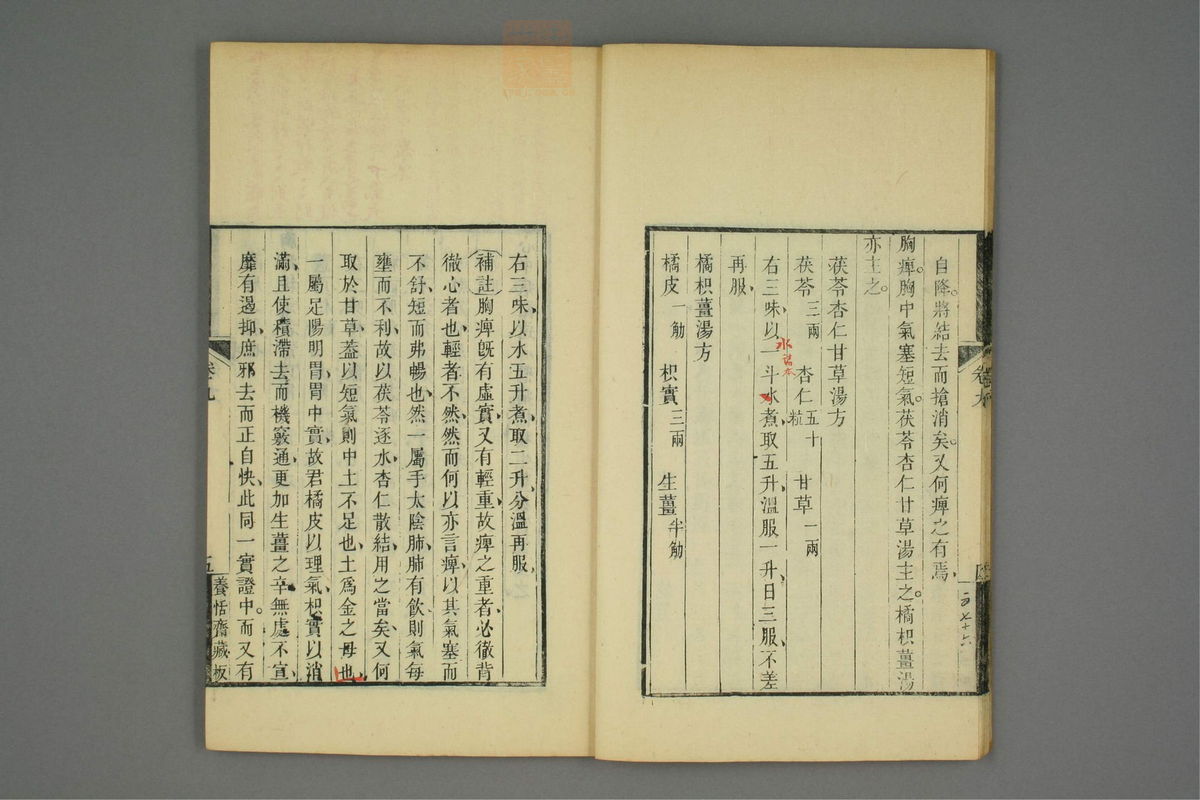 自降。將結去而搶消矣。又何痺之有焉、
胸痺。胸中氣塞短氣。茯苓杏仁甘草湯主之。橘枳薑湯
亦主之。
茯苓杏仁甘草湯方
茯苓三兩 杏仁五十粒 甘草一兩
右三味、以一斗水煮、取五升、溫服一升、日三服、不差
水
再服、
橘枳薑湯方
橘皮一觔 枳實三兩 生薑半觔
卷九
右三味、以水五升煮、取二升、分溫再服
補註胸痺旣有虛實、又有輕重、故痺之重者、必徹背
徹心者也、輕者不然、然而何以亦言痺、以其氣塞而
不舒、短而弗暢也、然一屬手太陰肺、肺有飲則氣每
壅而不利、故以茯苓逐水、杏仁散結、用之當矣、又何
取於甘草、葢以短氣則中土不足也、土爲金之母也、
一屬足陽明胃、胃中實、故君橘皮以理氣、枳實以消
滿、且使積滯去而機竅通、更加生薑之辛、無處不宣、
靡有遏抑、庶邪去而正自快、此同一實證中。而又有
卷九
五
養恬齋藏板